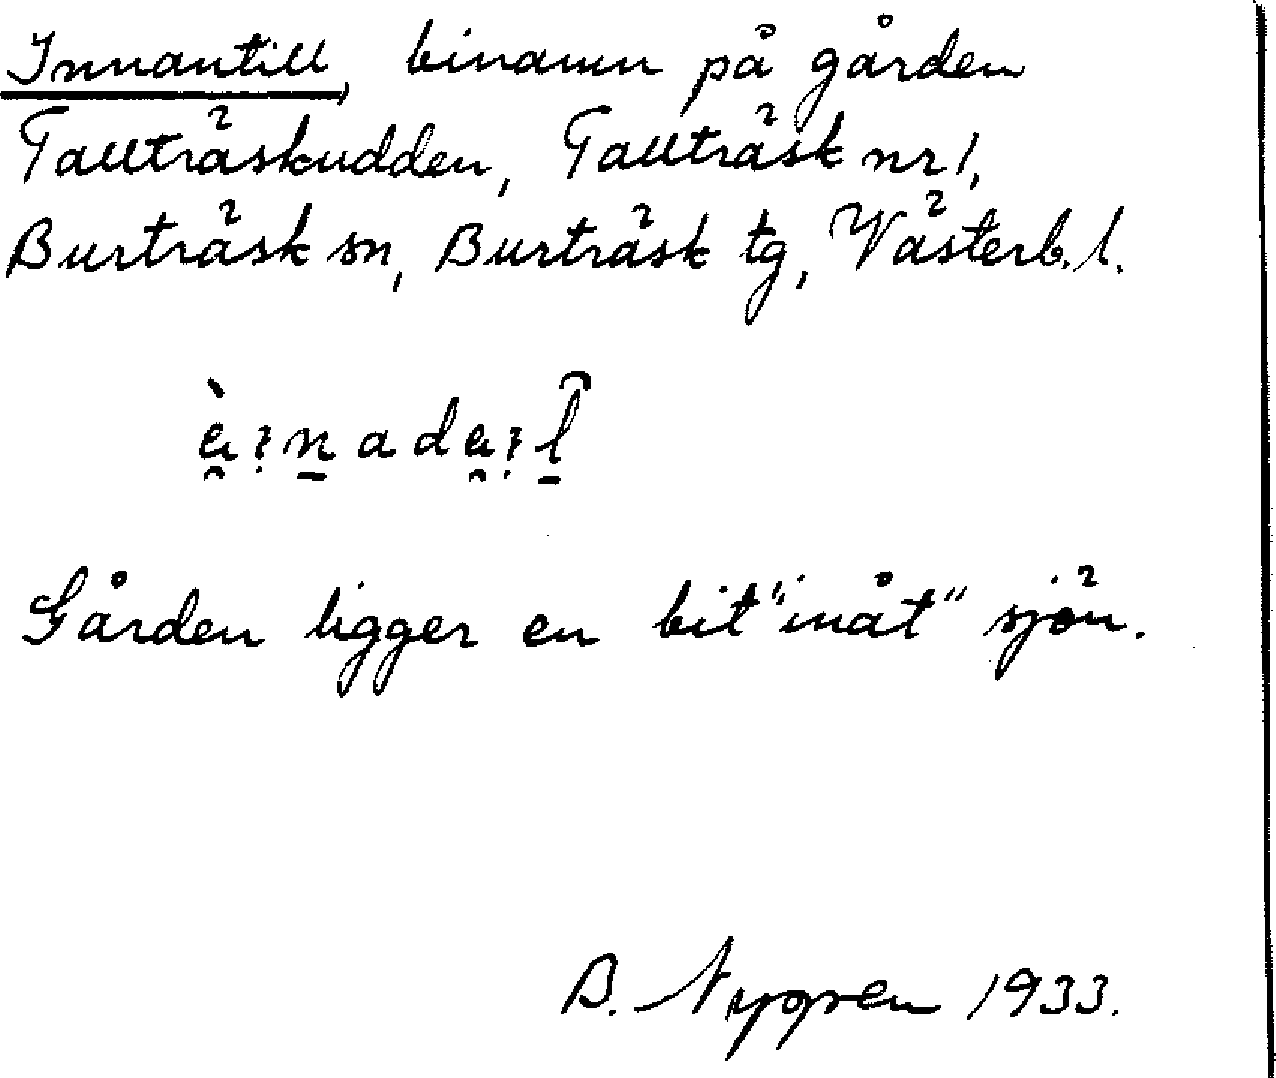 Innantill, binamn på gården
Tallträskudden, Tallträsk nr 1,
Burträsk sn, Burträsk tg, Västerb. l.
Gården ligger en bit "inåt" sjön.
B. Nygren 1933.